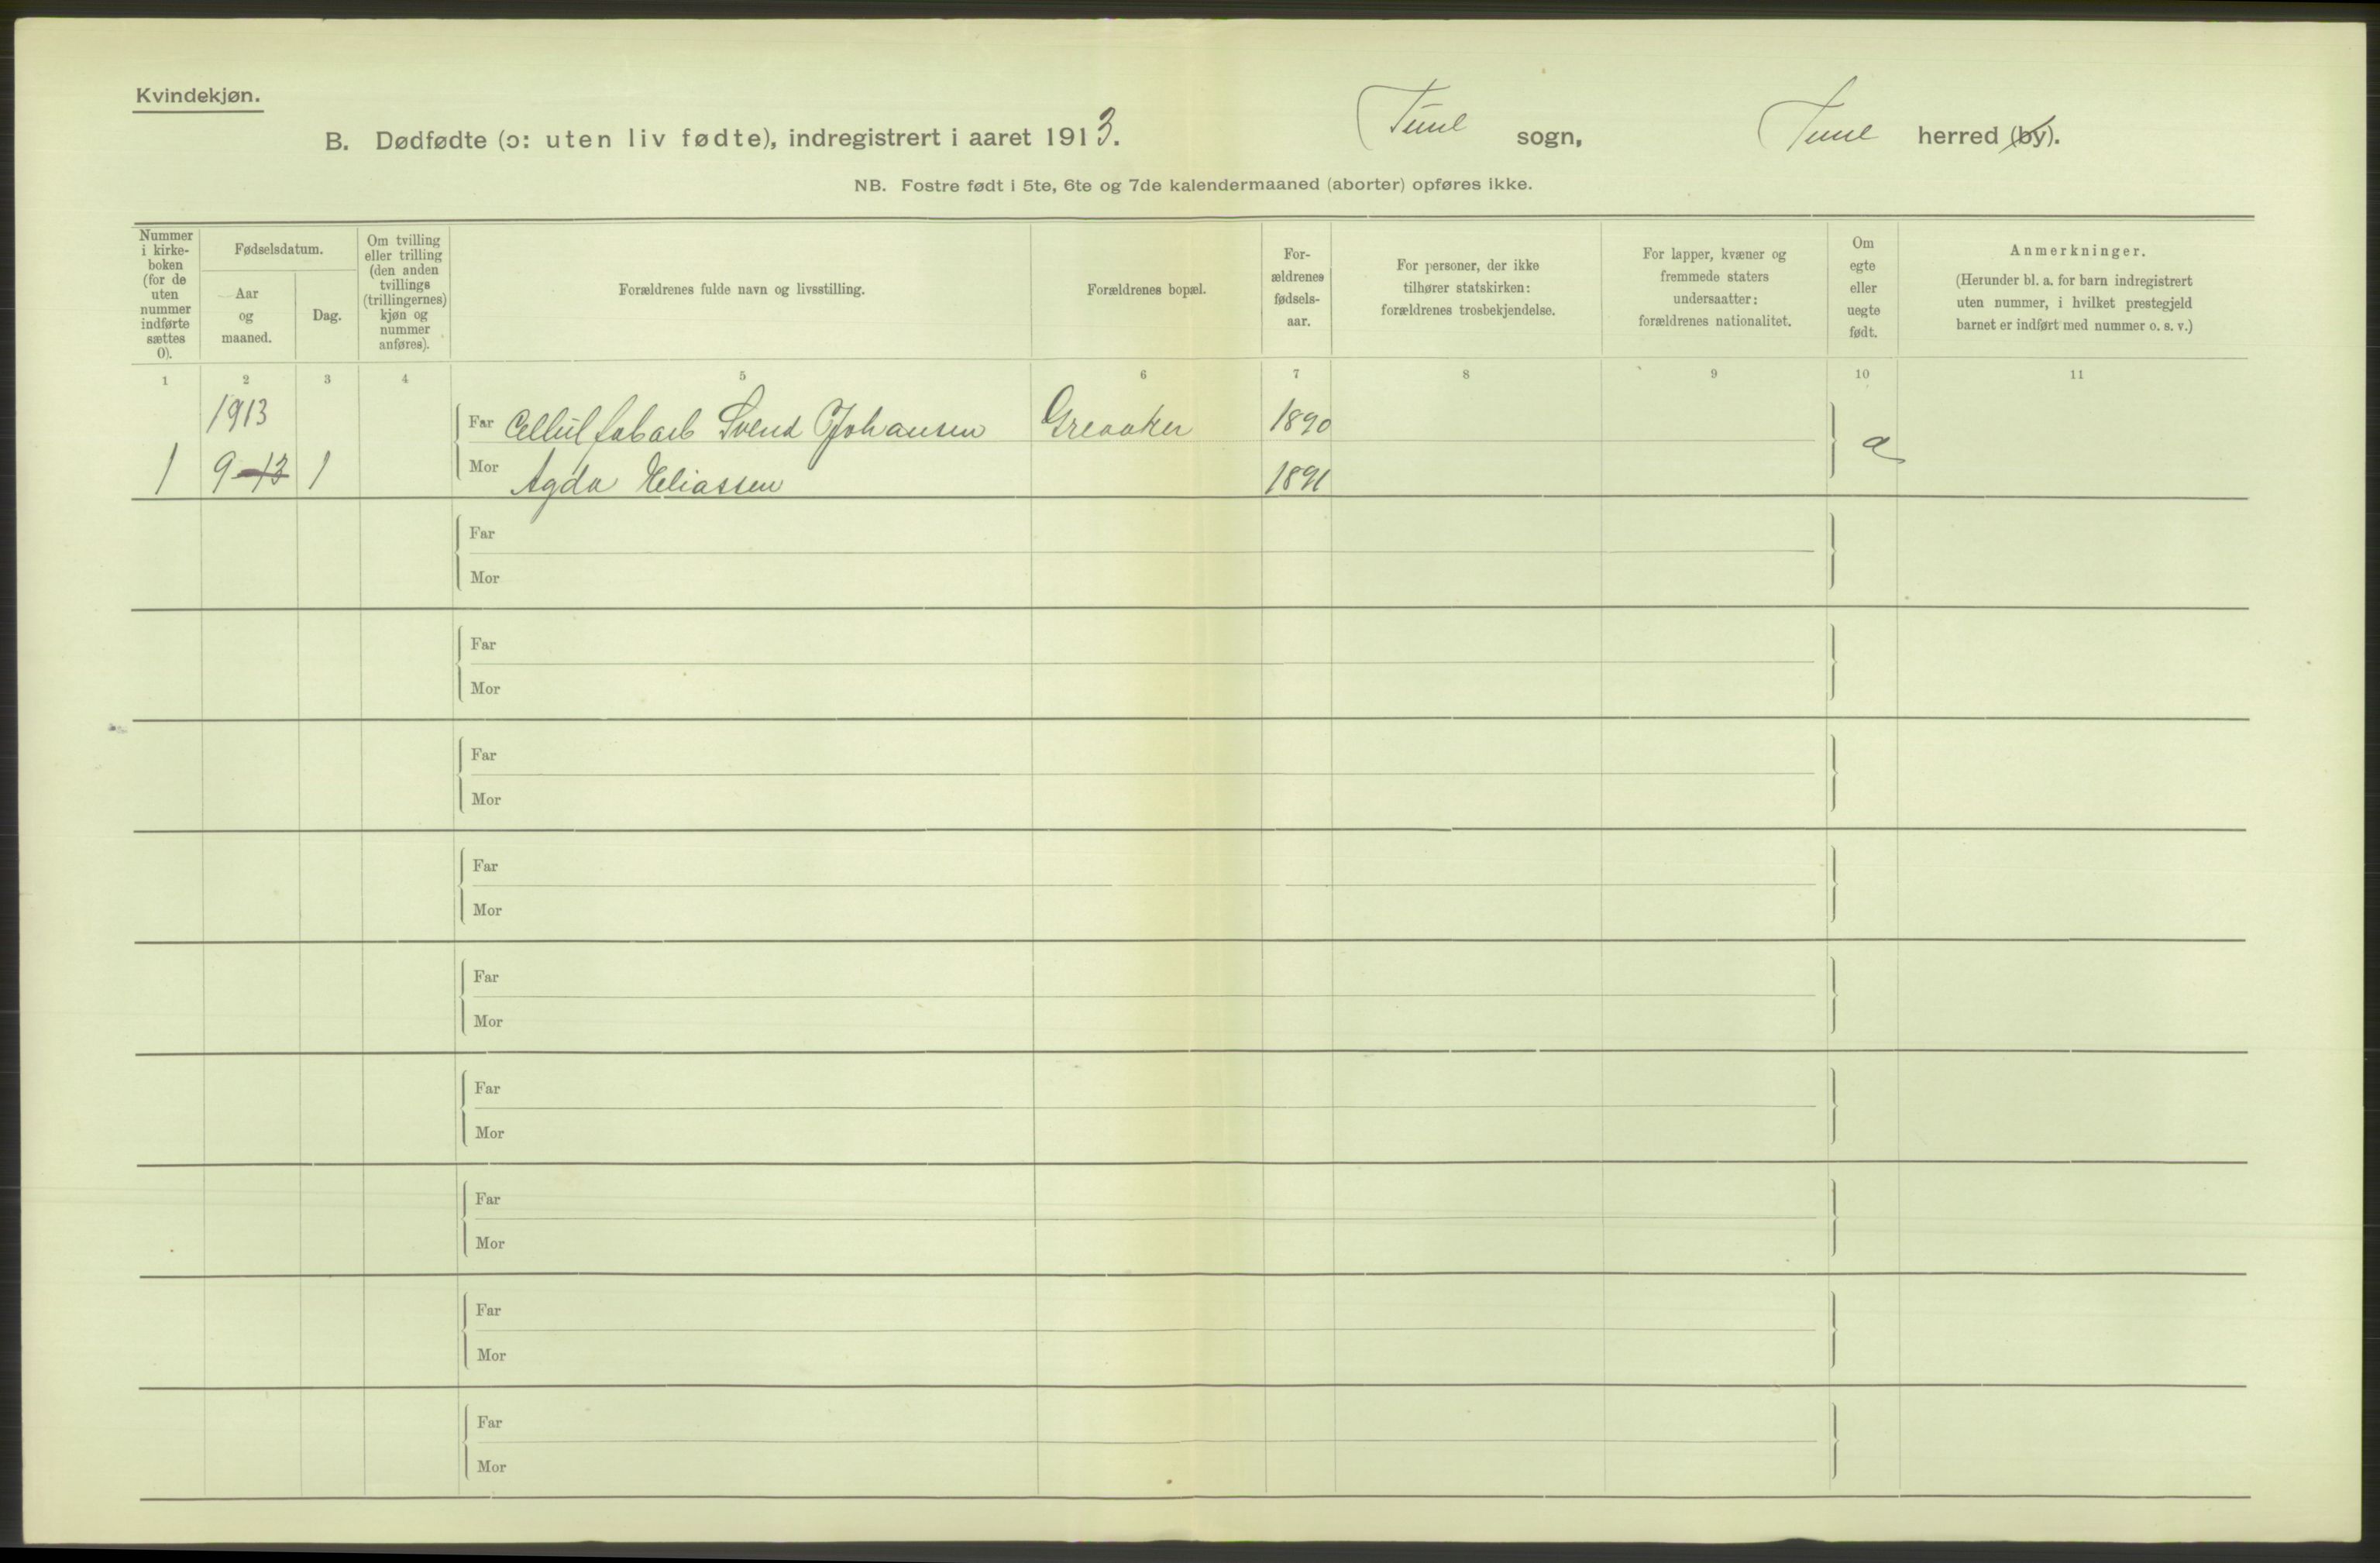 Kvindekjøn.
B. Dødfødte (ɔ: uten liv fødte), indregistrert i aaret 1913. Tune sogn, Tune herred (by).
NB. Fostre født i 5te, 6te og 7de kalendermaaned (aborter) opføres ikke.
Nummer
i kirke-
boken
(for de
uten
nummer
indførte
sættes
0).
Fødselsdatum.
Aar
og
maaned.
Dag.
Om tvilling
eller trilling
(den anden
tvillings
(trillingernes)
kjøn og
nummer
anføres).
Forældrenes fulde navn og livsstilling.
Forældrenes bopæl.
For-
ældrenes
fødsels-
aar.
For personer, der ikke
tilhører statskirken:
forældrenes trosbekjendelse.
For lapper, kvæner og
fremmede staters
undersaatter:
forældrenes nationalitet.
Om
egte
eller
uegte
født.
Anmerkninger.
(Herunder bl. a. for barn indregistrert
uten nummer, i hvilket prestegjeld
barnet er indført med nummer o. s. v.)
1 2 3 4 5 6 7 8 9 10 11
1913 Far Cellulfabarb Svend Johansen Greaaker 1890
1 9 13 1 Mor Agda Eliassen 1891
Far
Mor
Far
Mor
Far
Mor
Far
Mor
Far
Mor
Far
Mor
Far
Mor
Far
Mor
Far
Mor